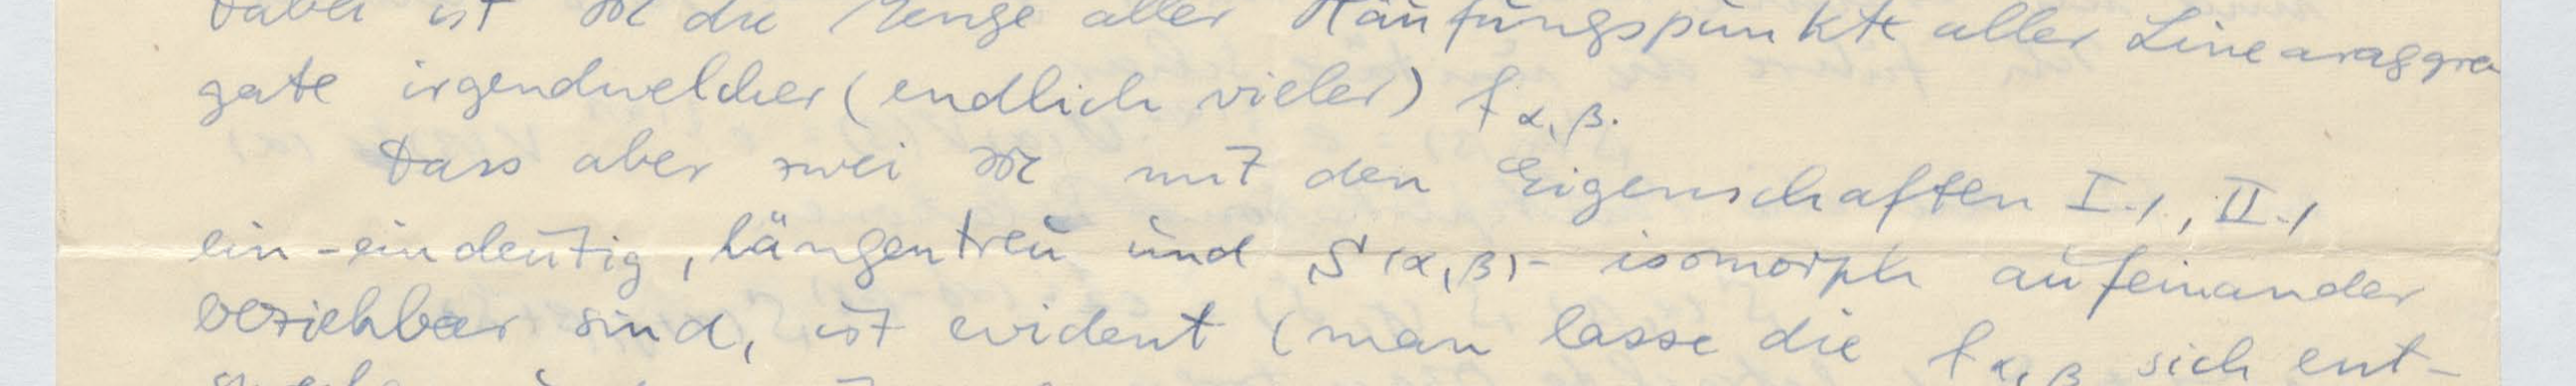 Dabei ist 𝔐 die Menge aller Häufungspunkte aller Linearaggre
gate irgendwelcher (endlich vieler) f α, β.
Dass aber zwei 𝔐 mit den Eigenschaften I., II.
ein-eindeutig, längentreu und S(α, β)- isomorph aufeinander
beziehbar sind, ist evident (man lasse die f α, β sich ent-